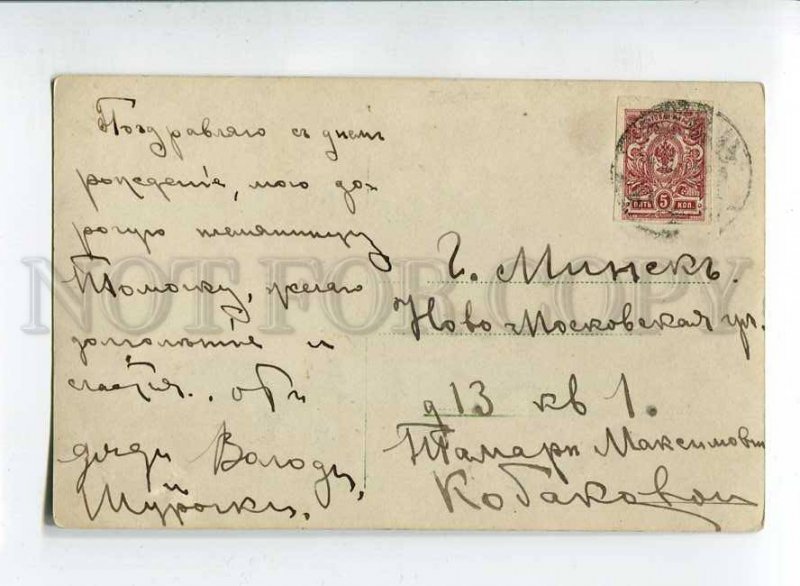 Поздравляю съ днемъ
рожденія, мою до-
рогую племянницу
Томочку, желаю
долголѣтія и
счастія.. отъ
дяди Володи,
Шурочки.
г. Минскъ.
Ново-Московская ул.
д 13 кв 1.
Тамарѣ Максимовнѣ
Кобаковой
ПЯТЬ 5 КОП.
NOT FOR COPY